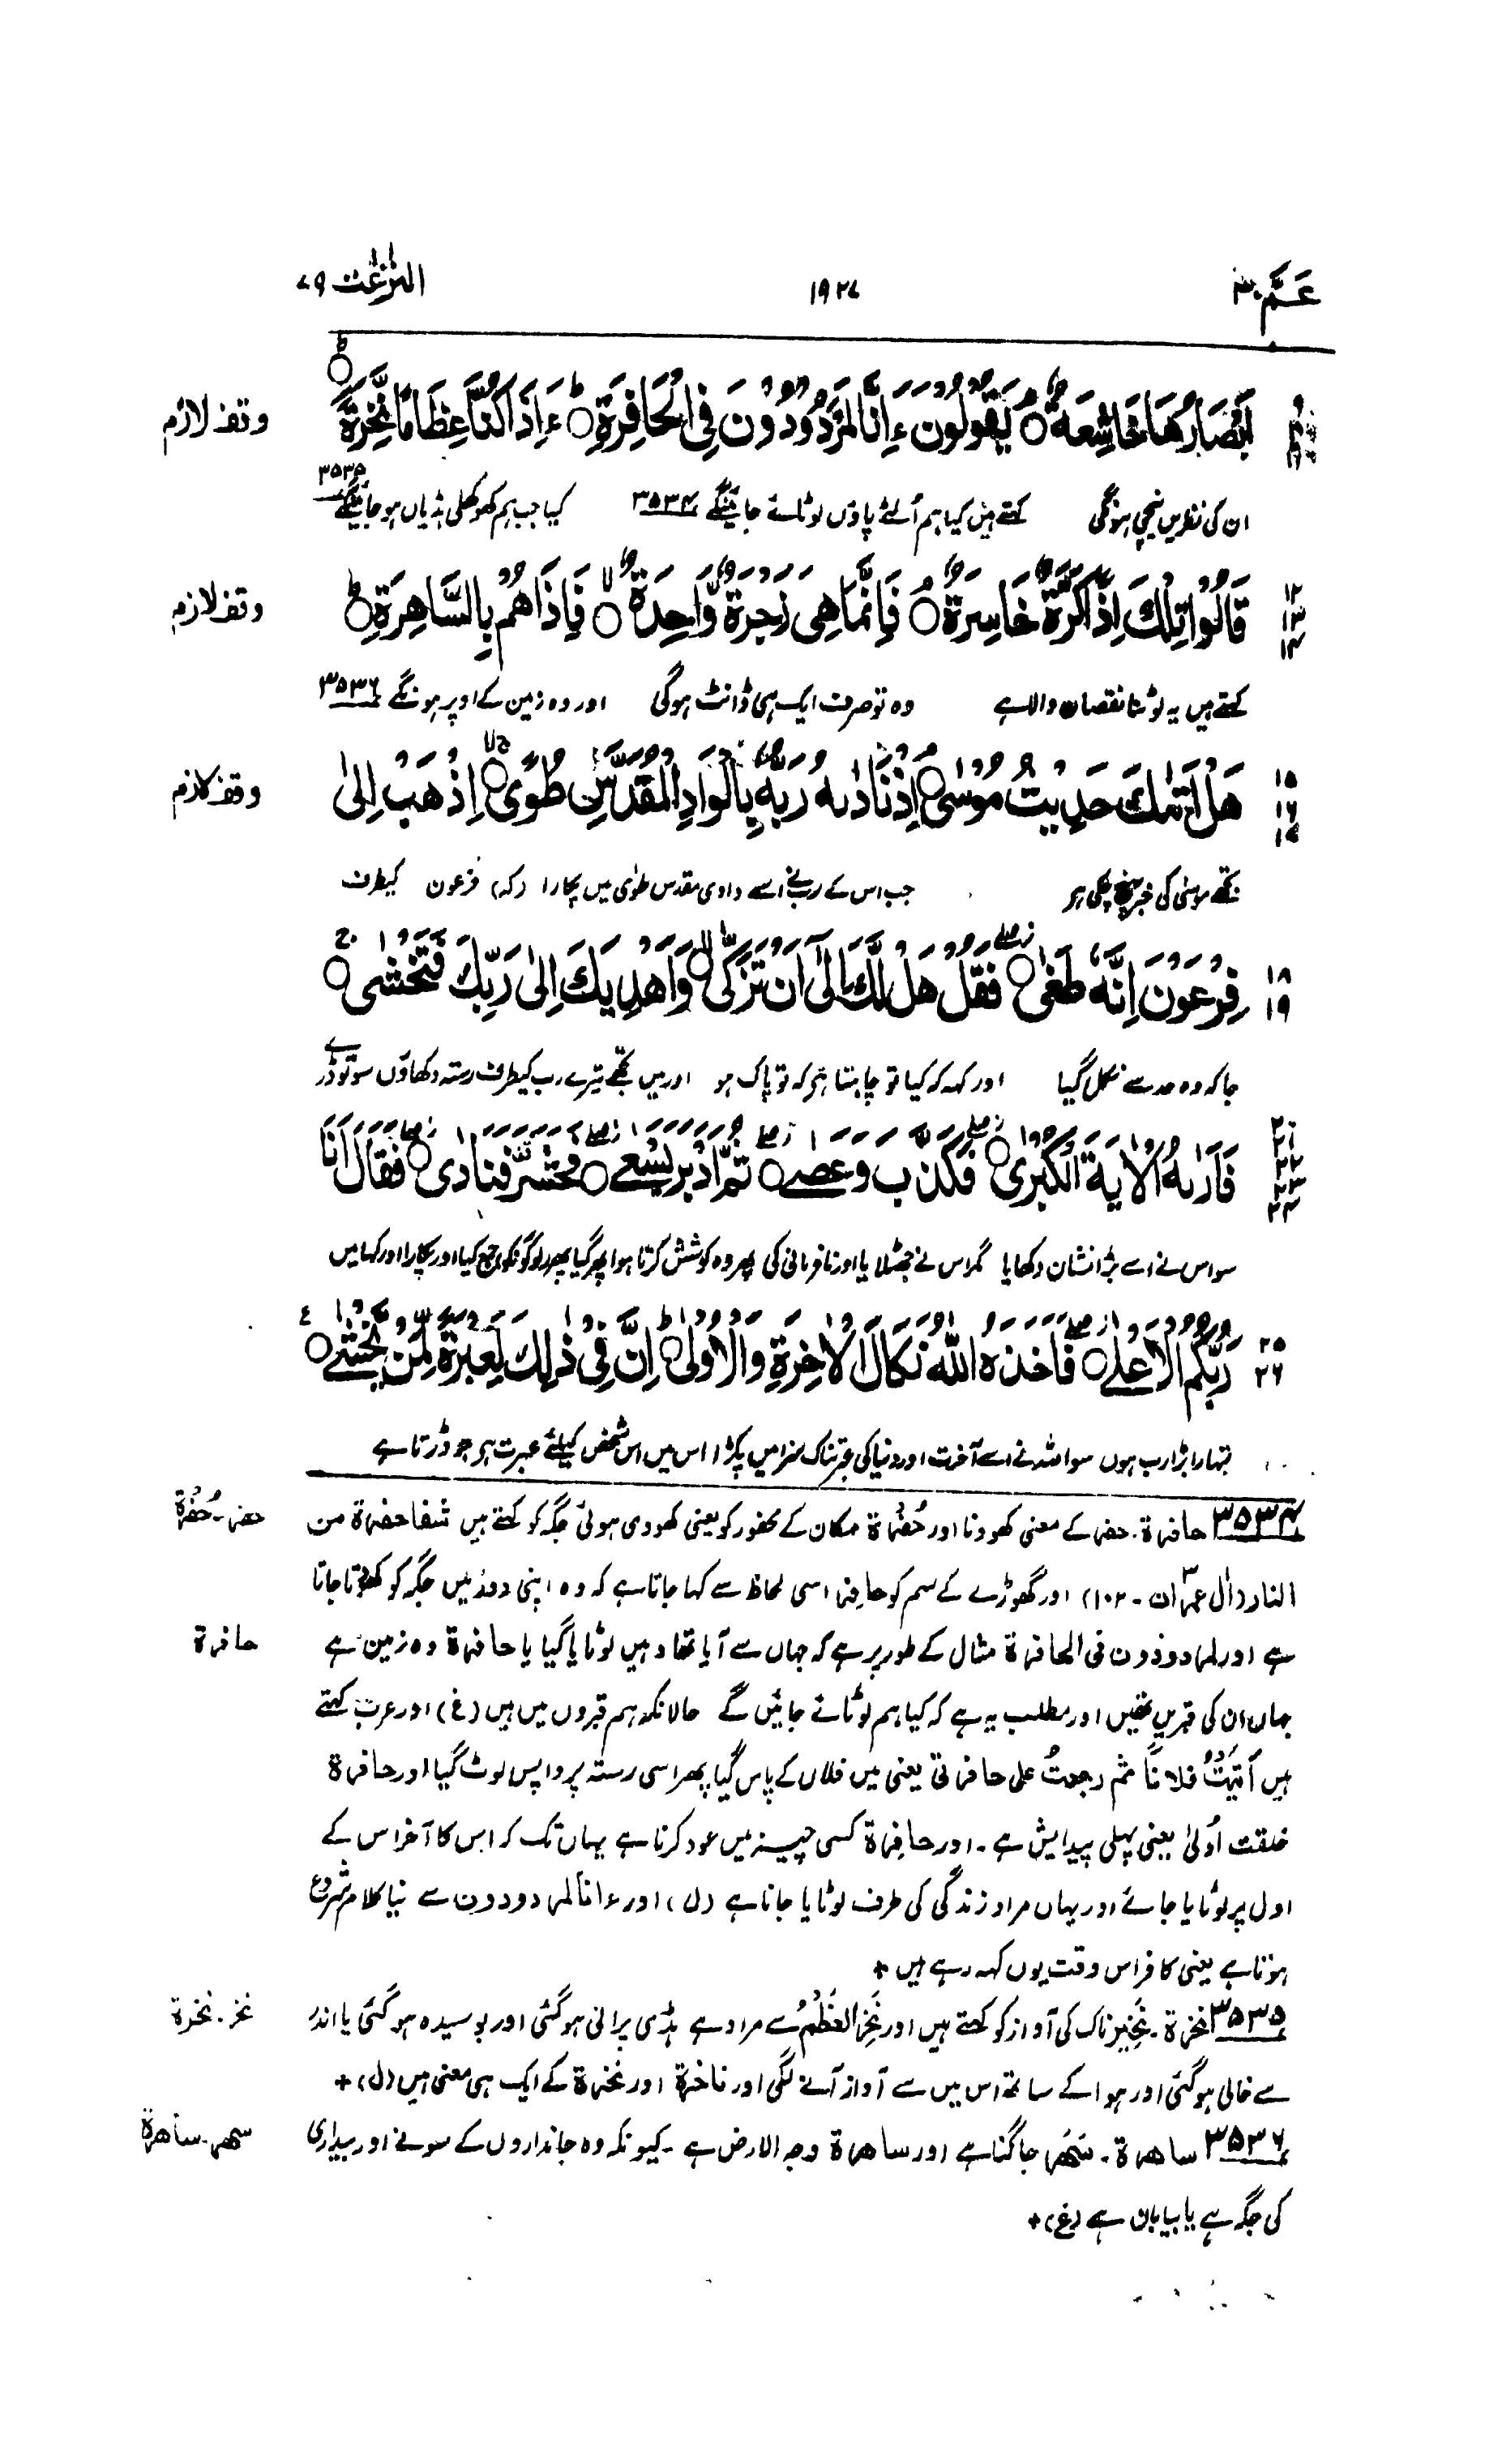 عَمَّ ۳۰
۱۹۲۷
النّٰزعٰت ۷۹
اَبْصَارُهَا خَاشِعَةٌ ۘ يَقُوْلُوْنَ ءَاِنَّا لَمَرْدُوْدُوْنَ فِى الْحَافِرَةِ ؕ ءَاِذَا كُنَّا عِظَامًا نَّخِرَةً ؕ
وقف لازم
ان کی نظریں نیچی ہونگی کہتے ہیں کیا ہم اُلٹے پاؤں لوٹائے جائینگے ۳۵۳۴ کیا جب ہم کھوکھلی ہڈیاں ہو جائینگے ۳۵۳۵
۱۲ ۱۳ ۱۴
قَالُوْا تِلْكَ اِذًا كَرَّةٌ خَاسِرَةٌ ۘ فَاِنَّمَا هِىَ زَجْرَةٌ وَّاحِدَةٌ ۙ فَاِذَا هُمْ بِالسَّاهِرَةِ ؕ
وقف لازم
کہتے ہیں یہ لوٹنا نقصان والا ہے وہ تو صرف ایک ہی ڈانٹ ہوگی اور وہ زمین کے اوپر ہونگے ۳۵۳۶
۱۵ ۱۶ ۱۷
هَلْ اَتٰىكَ حَدِيْثُ مُوْسٰى ۘ اِذْ نَادٰىهُ رَبُّهٗ بِالْوَادِ الْمُقَدَّسِ طُوًى ۚ اِذْهَبْ اِلٰى
وقف لازم
تجھے موسٰی کی خبر پہنچ چکی ہے جب اس کے رب نے اسے وادی مقدس طوٰی میں پکارا (کہ) فرعون کیطرف
۱۸ ۱۹
فِرْعَوْنَ اِنَّهٗ طَغٰى ۖ فَقُلْ هَلْ لَّكَ اِلٰٓى اَنْ تَزَكّٰى ۙ وَاَهْدِيَكَ اِلٰى رَبِّكَ فَتَخْشٰى ۚ
جا کہ وہ حد سے نکل گیا اور کہہ کہ کیا تو چاہتا ہے کہ تو پاک ہو اور میں تجھے تیرے رب کیطرف رستہ دکھاؤں سو تو ڈرے
۲۰ ۲۱ ۲۲ ۲۳ ۲۴
فَاَرٰىهُ الْاٰيَةَ الْكُبْرٰى ۖ فَكَذَّبَ وَعَصٰى ۖ ثُمَّ اَدْبَرَ يَسْعٰى ۖ فَحَشَرَ فَنَادٰى ۖ فَقَالَ اَنَا
سو اس نے اسے بڑا نشان دکھایا مگر اس نے جھٹلایا اور نافرمانی کی پھر وہ کوشش کرتا ہوا پھر گیا پھر لوگونکو جمع کیا اور پکارا اور کہا میں
۲۵ ۲۶
رَبُّكُمُ الْاَعْلٰى ۖ فَاَخَذَهُ اللّٰهُ نَكَالَ الْاٰخِرَةِ وَالْاُوْلٰى ؕ اِنَّ فِىْ ذٰلِكَ لَعِبْرَةً لِّمَنْ يَّخْشٰى ۚ ع
تمہارا بڑا رب ہوں سو اللہ نے اسے آخرت اور دنیا کی عبرتناک سزا میں پکڑا اس میں اس شخص کیلئے عبرت ہے جو ڈرتا ہے
۳۵۳۴ حافرة۔ حفر کے معنی کھودنا اور حُفْرَة مکان کے محفور کو یعنی کھودی ہوئی جگہ کو کہتے ہیں شفا حفرة من
حفر۔ حُفْرة
النار (اٰل عمران۔ ۱۰۲) اور گھوڑے کے سم کو حافر اسی لحاظ سے کہا جاتا ہے کہ وہ اپنی دوڑ میں جگہ کو کھودتا جاتا
ہے اور لمردودون فی الحافرة مثال کے طور پر ہے کہ جہاں سے آیا تھا وہیں لوٹایا گیا یا حافرة وہ زمین ہے
حافرة
جہاں ان کی قبریں تھیں اور مطلب یہ ہے کہ کیا ہم لوٹائے جائیں گے حالانکہ ہم قبروں میں ہیں (غ) اور عرب کہتے
ہیں اَتَیْتُ فلانًا ثم رجعتُ علی حافرتی یعنی میں فلاں کے پاس گیا پھر اسی رستہ پر واپس لوٹ گیا اور حافرة
خلقت اُولیٰ یعنی پہلی پیدایش ہے۔ اور حافِرة کسی چیز میں عود کرنا ہے یہاں تک کہ اس کا آخر اس کے
اول پر لوٹایا جائے اور یہاں مراد زندگی کی طرف لوٹایا جانا ہے (ل) اور ءانا لمردودون سے نیا کلام شروع
ہوتا ہے یعنی کافر اس وقت یوں کہہ رہے ہیں +
۳۵۳۵ نخرة۔ نَخِیر ناک کی آواز کو کہتے ہیں اور نَخِرَ العَظْمُ سے مراد ہے ہڈی پرانی ہوگئی اور بوسیدہ ہوگئی یا اندر
نخر۔ نخرة
سے خالی ہوگئی اور ہوا کے ساتھ اس میں سے آواز آنے لگی اور ناخرة اور نخرة کے ایک ہی معنی ہیں (ل) +
۳۵۳۶ ساهرة۔ سَهَر جاگنا ہے اور ساهرة وجہ الارض ہے۔ کیونکہ وہ جانداروں کے سونے اور بیداری
سهر۔ ساهرة
کی جگہ ہے یا بیابان ہے (غ) +